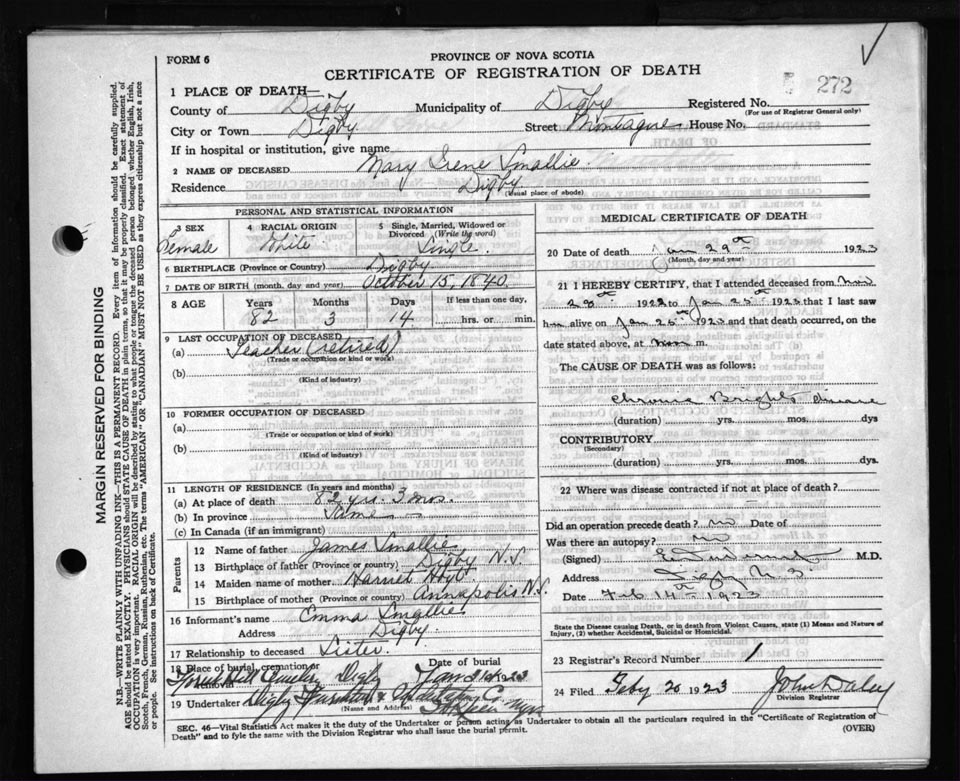 FORM 6
PROVINCE OF NOVA SCOTIA
CERTIFICATE OF REGISTRATION OF DEATH
272
1 PLACE OF DEATH—
County of Digby Municipality of Digby Registered No.
(For use of Registrar General only)
City or Town Digby Street Montague House No.
If in hospital or institution, give name
2 NAME OF DECEASED Mary Irene Smallie
Residence Digby
(Usual place of abode)
PERSONAL AND STATISTICAL INFORMATION
3 SEX Female
4 RACIAL ORIGIN White
5 Single, Married, Widowed or Divorced (Write the word) Single
6 BIRTHPLACE (Province or Country) Digby
7 DATE OF BIRTH (month, day, and year) October 15, 1840
8 AGE Years Months Days If less than one day,
82 3 14 hrs. or min.
9 LAST OCCUPATION OF DECEASED
(a) Teacher (retired)
(Trade or occupation or kind or work)
(b)
(Kind of industry)
10 FORMER OCCUPATION OF DECEASED
(a)
(Trade or occupation or kind of work)
(b)
(Kind of industry)
11 LENGTH OF RESIDENCE (In years and months)
(a) At place of death 82 yrs. 3 mos.
(b) In province Same
(c) In Canada (if an immigrant)
Parents
12 Name of father James Smallie
13 Birthplace of father (Province or country) Digby N.S.
14 Maiden name of mother Harriet Hoyt
15 Birthplace of mother (Province or country) Annapolis N.S.
16 Informant's name Emma Smallie
Address Digby
17 Relationship to deceased Sister
18 Place of burial, cremation or removal Digby
Date of burial Jan 31 1923
19 Undertaker Digby Furniture & Undertaking Co
(Name and Address)
MEDICAL CERTIFICATE OF DEATH
20 Date of death Jan 29th 1923
(Month, day and year)
21 I HEREBY CERTIFY, that I attended deceased from Nov
28th 1922 to Jan 25th 1923 that I last saw
h alive on Jan 25th 1923 and that death occurred, on the
date stated above, at noon m.
The CAUSE OF DEATH was as follows:
Chronic Brights disease
(duration) yrs. mos. dys
CONTRIBUTORY
(Secondary)
(duration) yrs. mos. dys.
22 Where was disease contracted if not at place of death?
Did an operation precede death? no Date of
Was there an autopsy? no
(Signed) M.D.
Address Digby N.S.
Date Feb 14th 1923
State the Disease causing Death, or in death from Violent Causes, state (1) Means and Nature of
Injury, (2) whether Accidental, Suicidal or Homicidal.
23 Registrar's Record Number
24 Filed Feby 20 1923 John Daley
Division Registrar
SEC. 46—Vital Statistics Act makes it the duty of the Undertaker or person acting as Undertaker to obtain all the particulars required in the "Certificate of Registration of
Death" and to fyle the same with the Division Registrar who shall issue the burial permit.
(OVER)
MARGIN RESERVED FOR BINDING
N.B.—WRITE PLAINLY WITH UNFADING INK—THIS IS A PERMANENT RECORD. Every item of information should be carefully supplied.
AGE should be stated EXACTLY. PHYSICIANS should STATE CAUSE OF DEATH in plain terms, so that it may be properly classified. Exact statement of
OCCUPATION is very important. RACIAL ORIGIN will be described by stating to what people or tongue the deceased person belonged whether English, Irish,
Scotch, French, German, Russian, Ruthenian, etc. The terms "AMERICAN" OR "CANADIAN" MUST NOT BE USED as they express citizenship but not a race
or people. See instructions on back of Certificate.